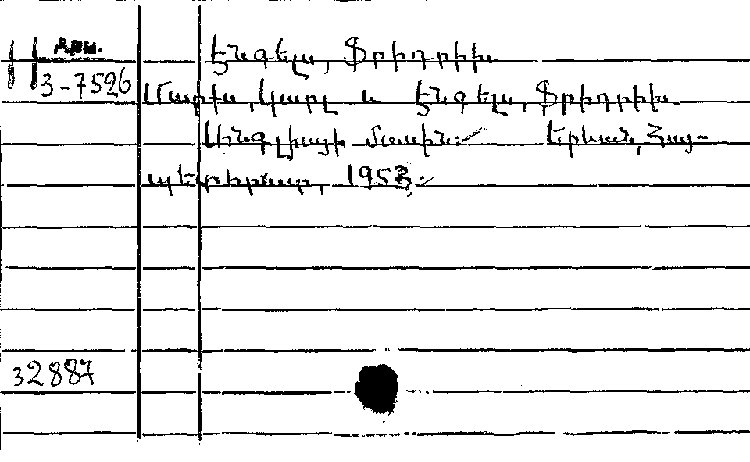 Արմ. Էնգելս, Ֆրիդրիխ
3-7526 Մարքս, Կարլ և Էնգելս, Ֆրիդրիխ.
Անգլիայի մասին: Երևան, Հայ-
պետհրատ, 1953:
32887